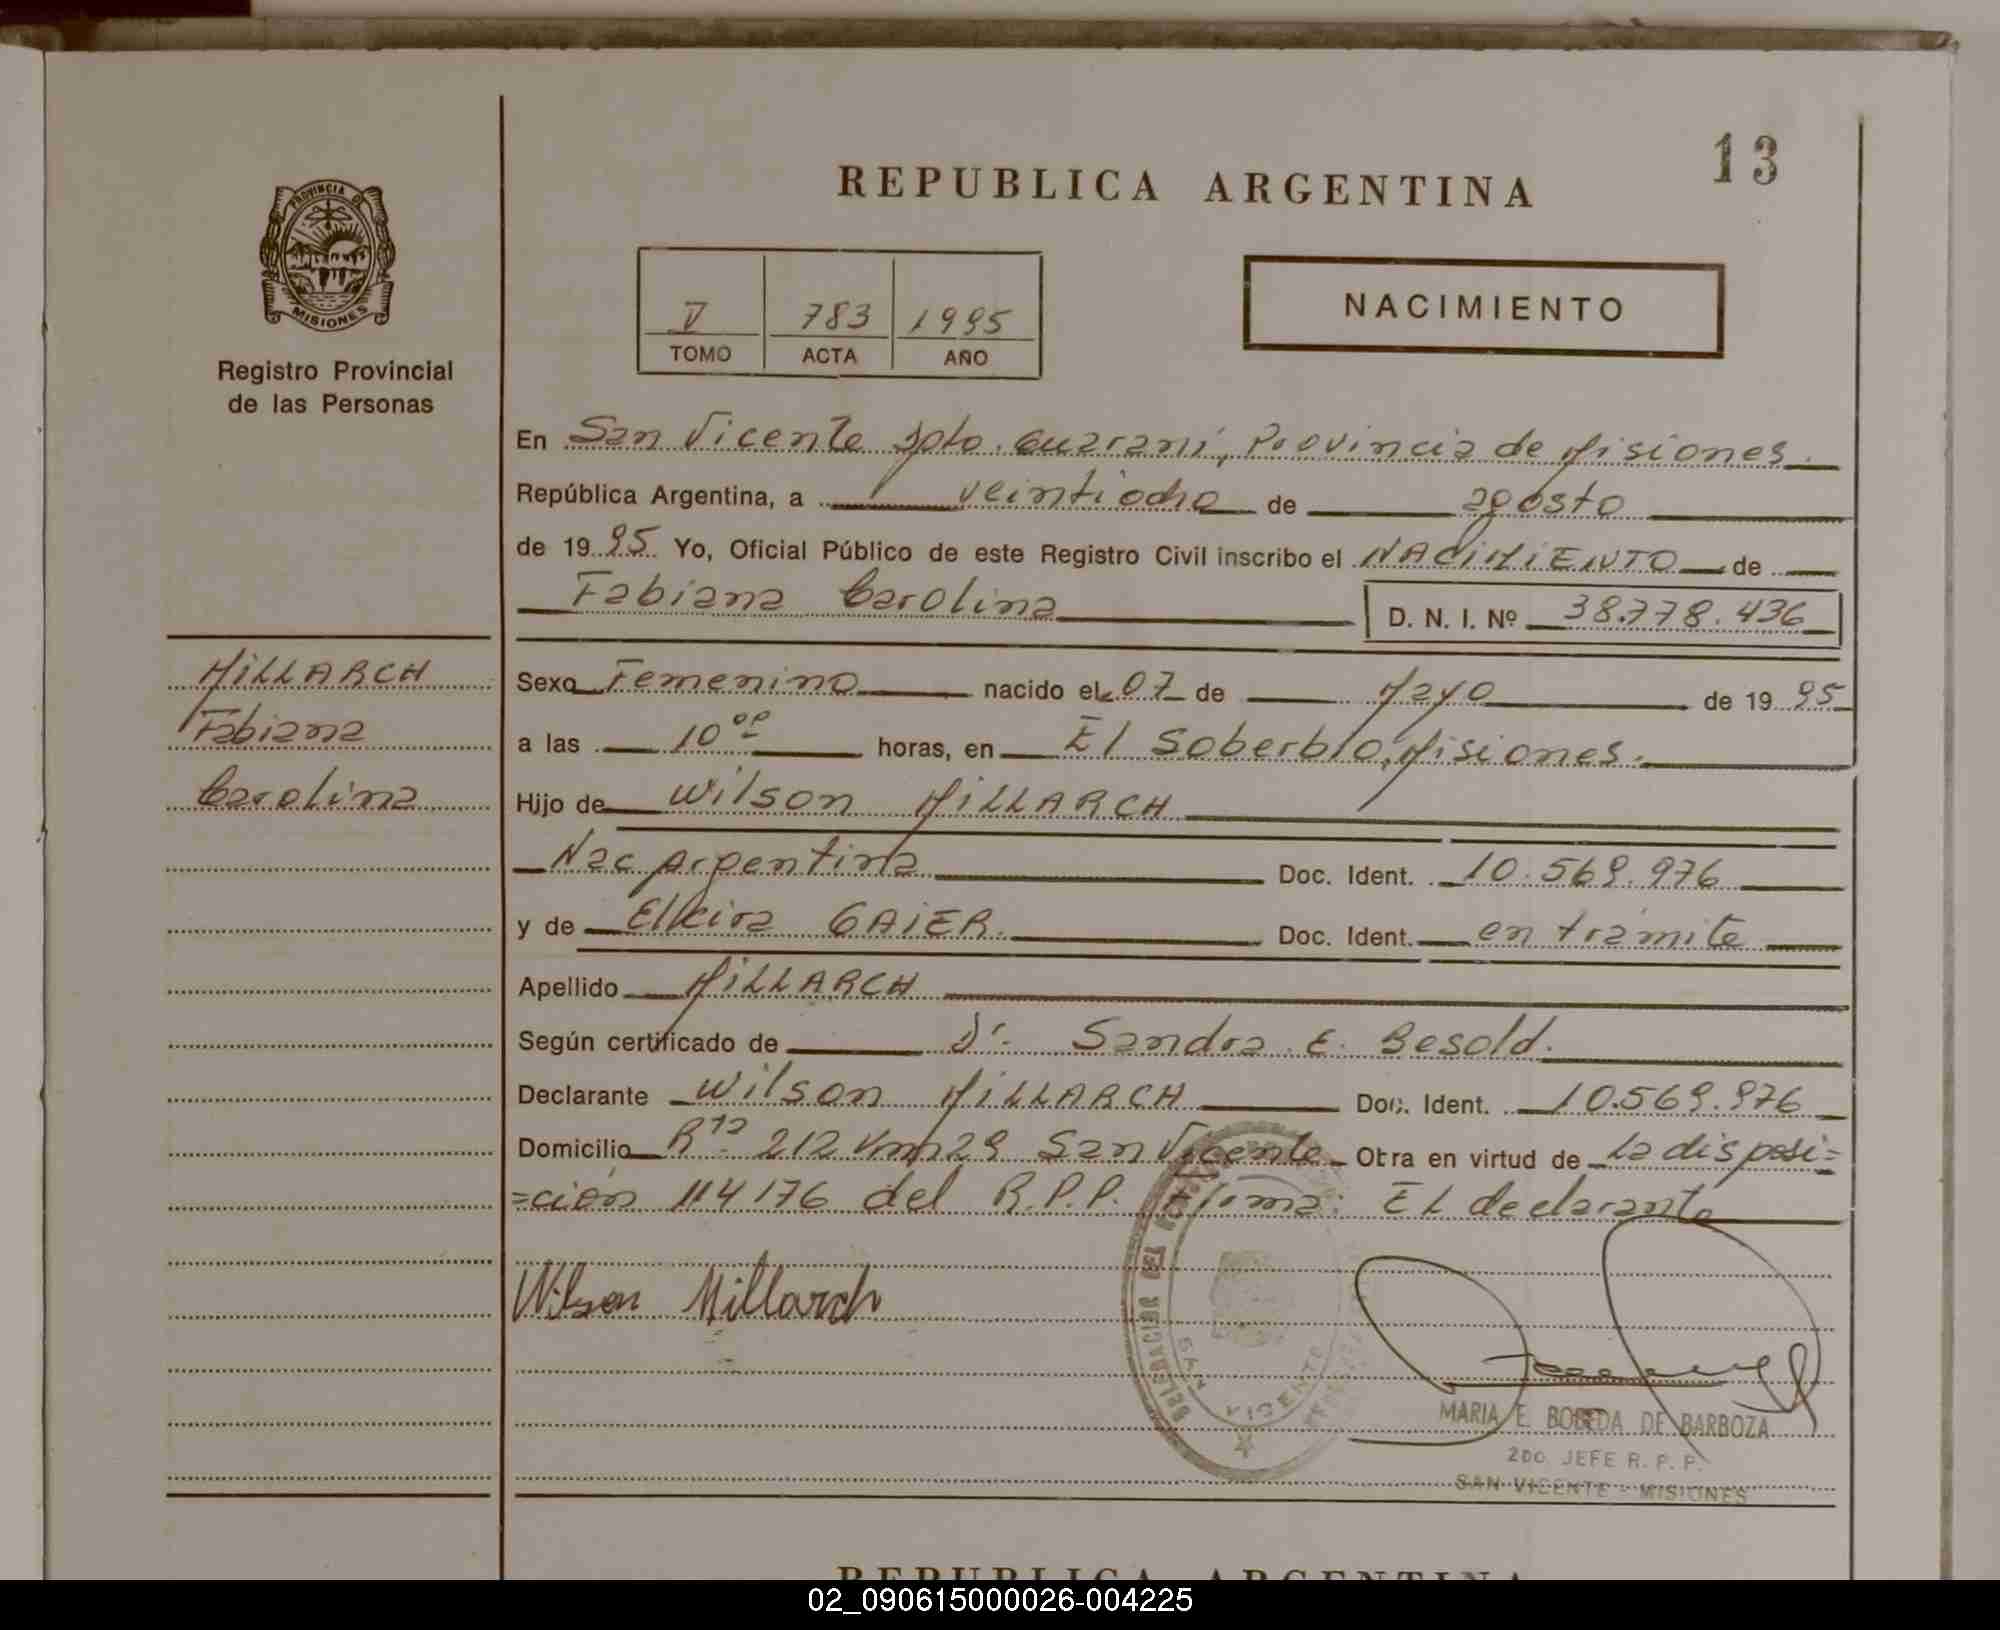 13
REPUBLICA ARGENTINA
PROVINCIA DE
MISIONES
Registro Provincial
de las Personas
V 783 1995
TOMO ACTA AÑO
NACIMIENTO
En San Vicente Dpto. Guaraní, Provincia de Misiones.
República Argentina, a veintiocho de agosto
de 1995 Yo, Oficial Público de este Registro Civil inscribo el NACIMIENTO de
Fabiana Carolina D. N. I. Nº 38.778.436
MILLARCH
Fabiana
Carolina
Sexo Femenino nacido el 07 de Mayo de 1995
a las 10 horas, en El Soberbio, Misiones.
Hijo de Wilson MILLARCH
Nac Argentina Doc. Ident. 10.569.976
y de GAIER. Doc. Ident. en trámite
Apellido MILLARCH
Según certificado de Dr. Sandra E. Besold.
Declarante Wilson MILLARCH Doc. Ident. 10.569.976
Domicilio Rta 212 Km 29 San Vicente Otra en virtud de La disposi=
=ción 114176 del R.P.P. Firma: El declarante
Wilson Millarch
DELEGACION DEL
SAN VICENTE
MARIA E. BOBEDA DE BARBOZA
2DO. JEFE R. P. P.
SAN VICENTE - MISIONES
REPUBLICA ARGENTINA
02_090615000026-004225